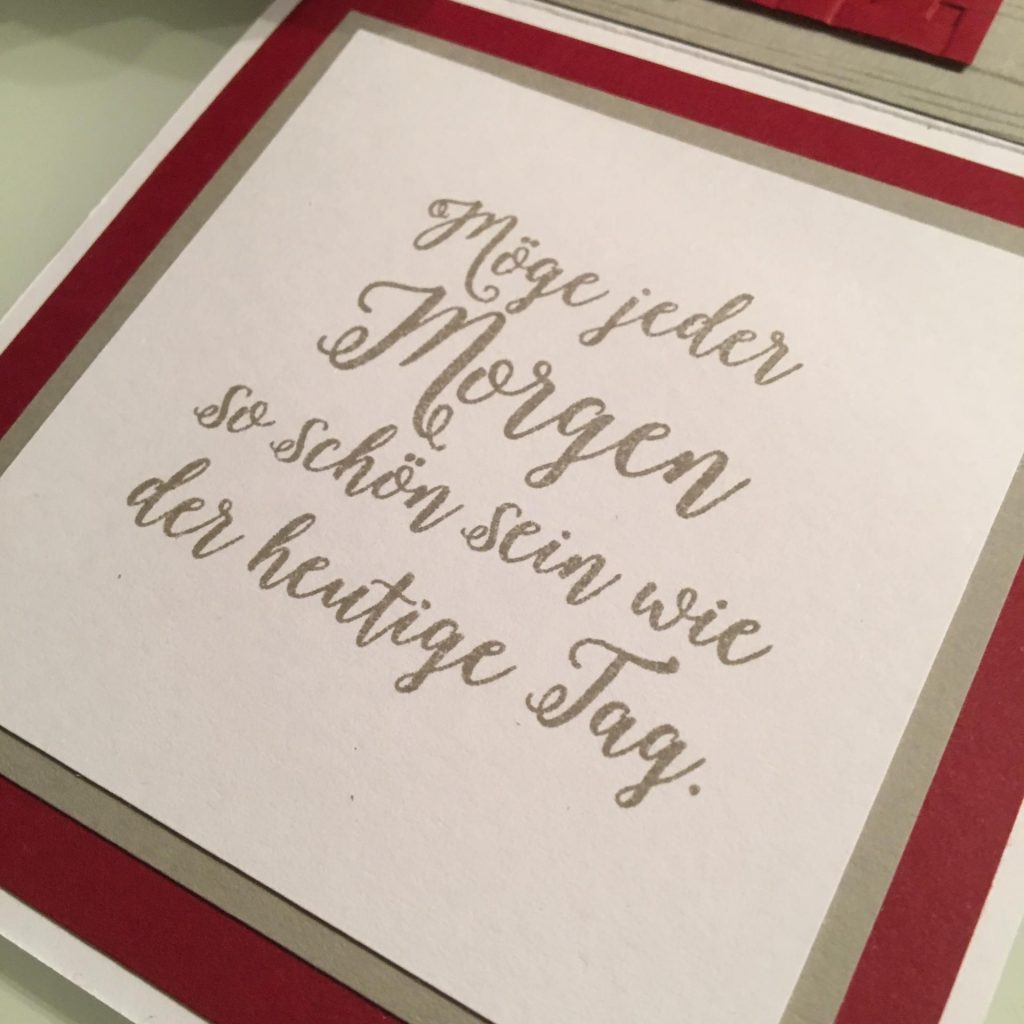 Möge jeder
Morgen
so schön sein wie
der heutige Tag.